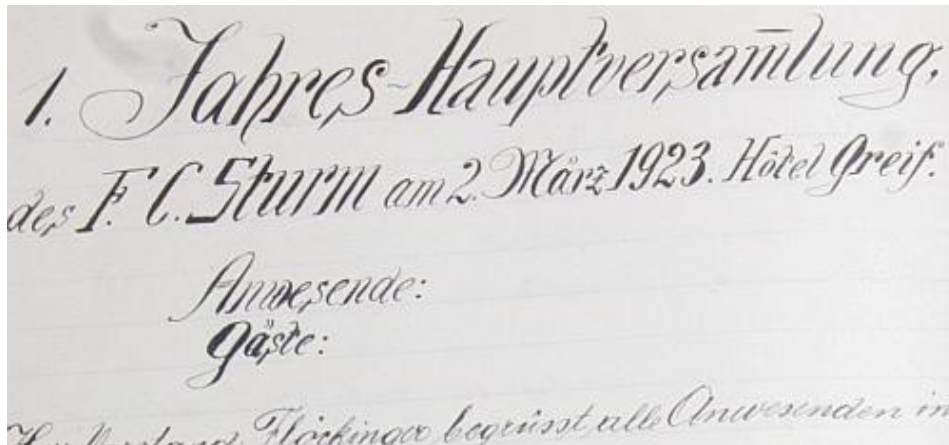 1. Jahres-Hauptversam̄lung.
des F. C. Sturm am 2. März 1923. Hôtel Greif.
Anwesende:
Gäste:
Flöckinger begrüsst alle Anwesenden in